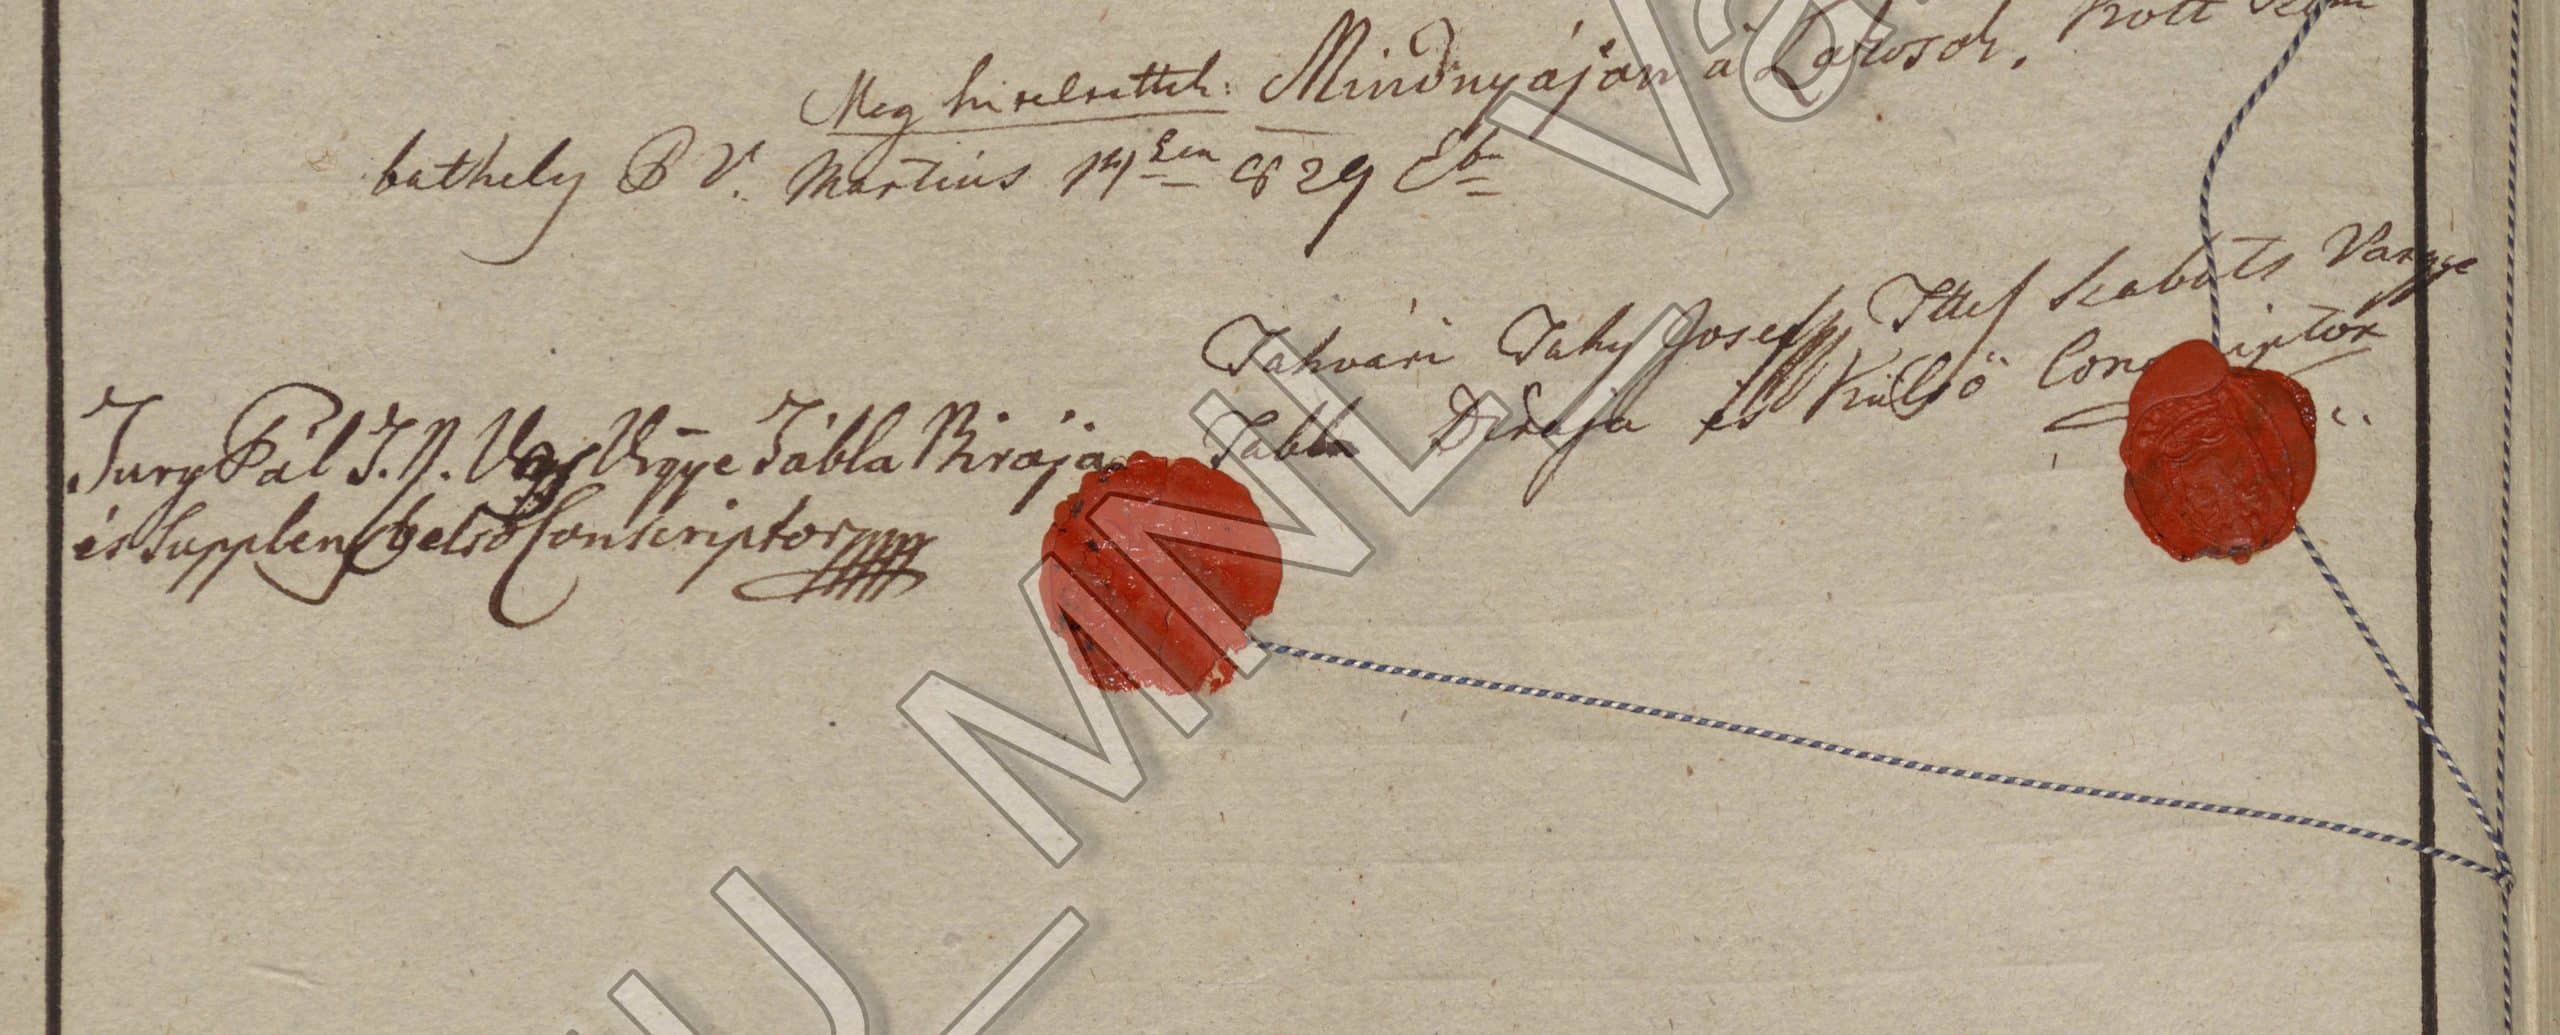 Meg hitelesittek: Mindnyáján a Lakosok, Költ Szom
bathely B V. Martius 14ken 829 Ebn
Tahvári Tahy Josef Ttes Szabolts Vargye
Tabla Biraja és Külső Conscriptor
Jury Pál T.N. Vas Vrgye Tábla Birája
és Supplens belső Conscriptor
HU_MNL_VaML